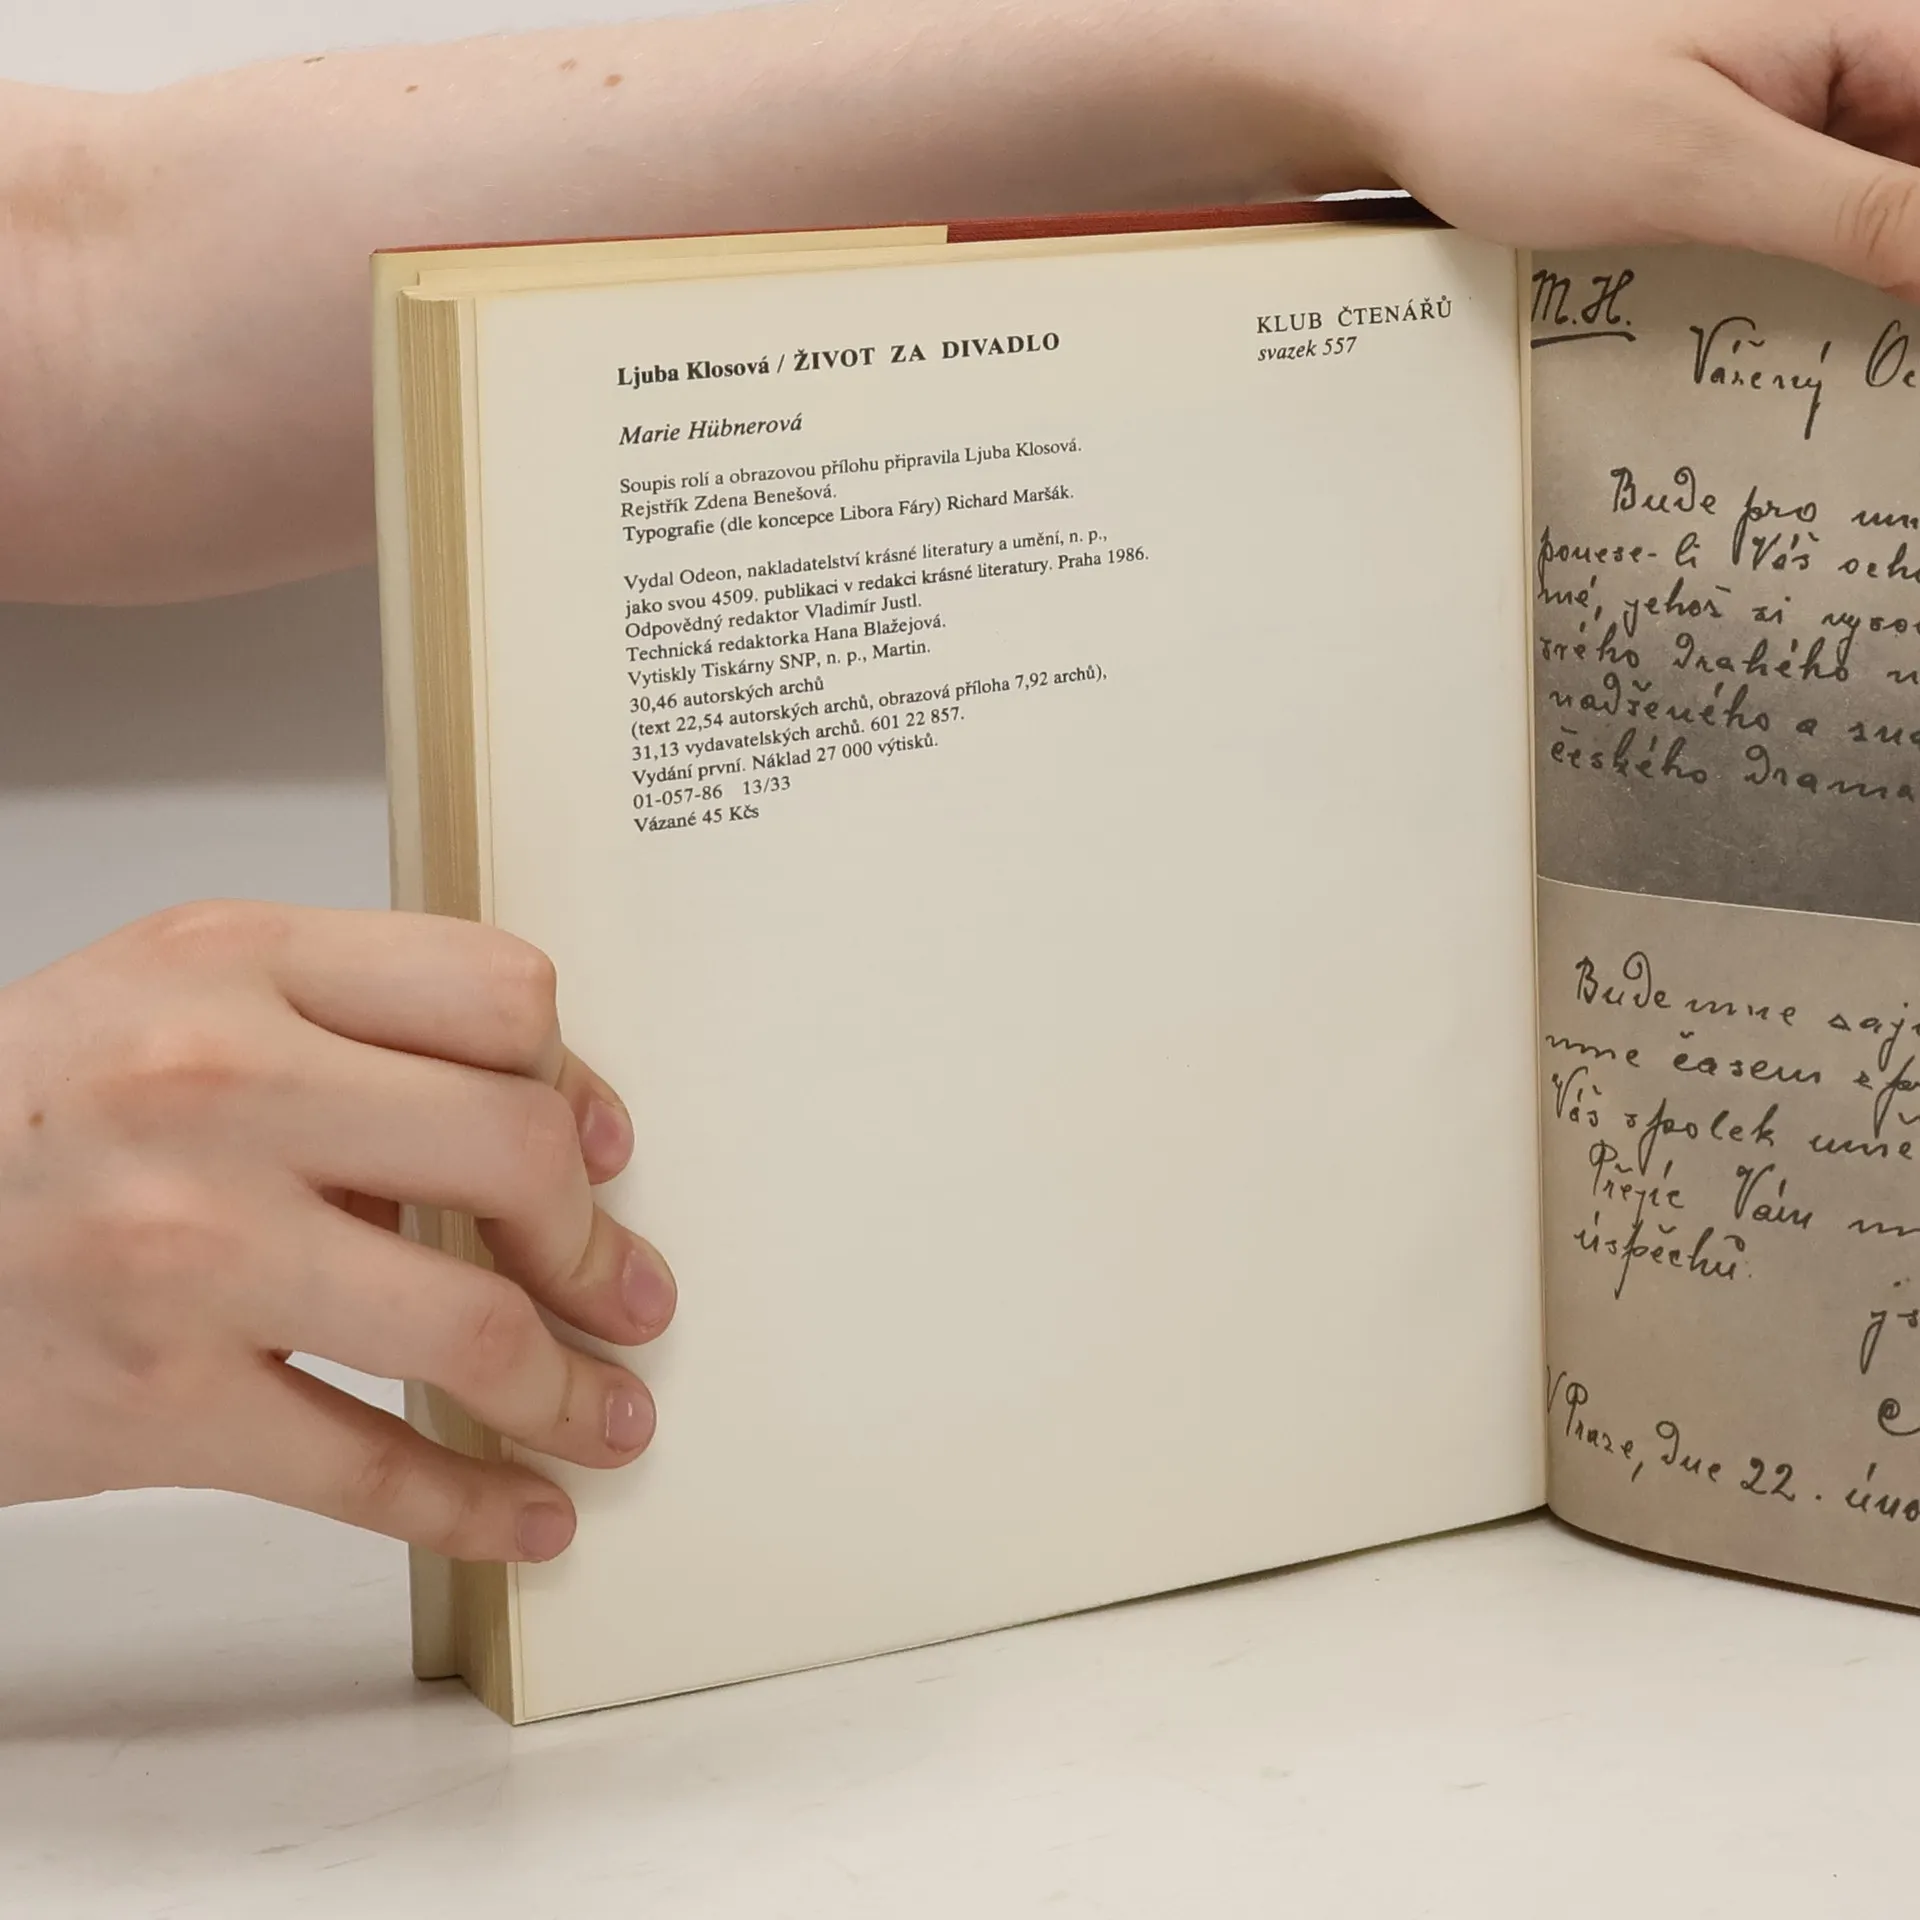 Ljuba Klosová / ŽIVOT ZA DIVADLO
KLUB ČTENÁŘŮ
svazek 557
Marie Hübnerová
Soupis rolí a obrazovou přílohu připravila Ljuba Klosová.
Rejstřík Zdena Benešová.
Typografie (dle koncepce Libora Fáry) Richard Maršák.
Vydal Odeon, nakladatelství krásné literatury a umění, n. p.,
jako svou 4509. publikaci v redakci krásné literatury. Praha 1986.
Odpovědný redaktor Vladimír Justl.
Technická redaktorka Hana Blažejová.
Vytiskly Tiskárny SNP, n. p., Martin.
30,46 autorských archů
(text 22,54 autorských archů, obrazová příloha 7,92 archů),
31,13 vydavatelských archů. 601 22 857.
Vydání první. Náklad 27 000 výtisků.
01-057-86 13/33
Vázané 45 Kčs
M.H.
Vážený
Bude pro
ponese-li Váš
mé, jehož si
drahého
nadšeného a
českého
Bude mne
mne časem
Váš spolek
Přejíc Vám
úspěchů.
V Praze, dne 22.